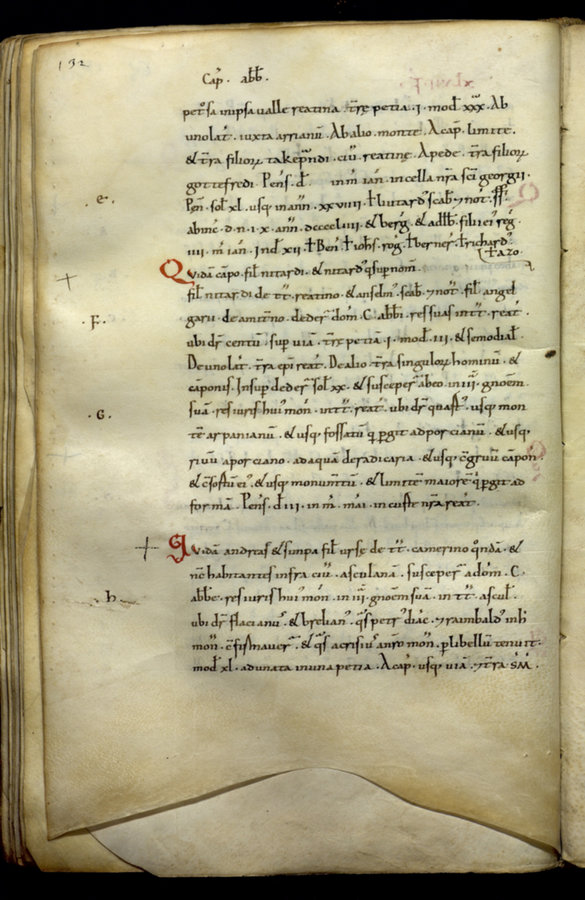 132
Cap̄ · abb̄ ·
pet̄sa inipsa ualle reatina · tr̄e petia · i · mod̄ xxx · Ab
unolat̄ · iuxta arrianū · Abalio · monte · Acap̄ · limite ·
& tr̄a filioꝝ takep̄ndi · ciū reatinę · Apede · tr̄a filioꝝ
gottefredi · Pens̄ · d̄ in m̄ ian̄ · incella nr̄a sc̄i georgii ·
e ·
Pen̄ · sol̄ xl · usq̄ inann̄ · xxviiii · liutard̄ scab̄ 7 not̄ ·
abinc̄ · d · n · i · x · ann̄ · dccccliiii · & berḡ · & adlb̄ · filii ei᾽ reḡ ·
iiii · m̄ ian̄ · Ind̄ xii · Ben̄ · ioh̄s · roḡ · berner᾽ · richard᾽
azo ·
Quidā capo · fil̄ nitardi · & nitard᾽ q̄sup̄nom̄ ·
fil̄ nitardi de tt̄ · reatino · & anselm̄ · scab̄ 7 not̄ · fil̄ angel
F ·
garii · de amit̄no · deder̄ dom̄ · C · abb̄i · res suas intt̄ · reat̄ ·
ubi dr̄ centū · sup̄ uiā · tr̄e petiā · i · mod̄ · iii · & semodial̄ ·
Deunolat̄ · tr̄a ep̄i reat̄ · Dealio · tr̄a singuloꝝ hominū · &
caponis · Insup̄ deder̄ sol̄ xx · & susceper̄ abeo · in iii · gnoem̄ ·
G ·
suā · res iuris hui᾽ mon̄ · intt̄ · reat̄ · ubi dr̄ quast᾽ · usq̄ mon
tē arpanianū · & usq̄ fossatū q̄ p̄git ad porcianū · & usq̄
riuū aporciano · ad aquā deradicaria · & usq̄ c̄gruū capon
& c̄sortū ei᾽ · & usq̄ monumtū · & limitē maiorē q̄ p̄git ad
formā · Pens̄ · d̄ iii · in m̄ · mai · in curte nr̄a reat̄ ·
Quidā andreas & sinpa fil̄ ursę de tt̄ · camerino q̄ndā · &
nc̄ habitantes infra ciū · asculanā · susceper̄ a dōm · C ·
h ·
abb̄e · res iuris hui᾽ mon̄ · in iii · gnoem̄ suā · in tt̄ · ascul̄ ·
ubi dr̄ flacianu᾽ · & brelian᾽ · q̄s petr᾽ diac̄ · 7 raimbald᾽ inh̄
mon̄ · c̄firmauer̄ · & q̄s acrisiu᾽ anr̄o mon̄ · p̄ libellū tenuit ·
mod̄ xl · adunata inuna petia · Acap̄ · usq̄ uiā · 7 tr̄a s̄m̄ ·